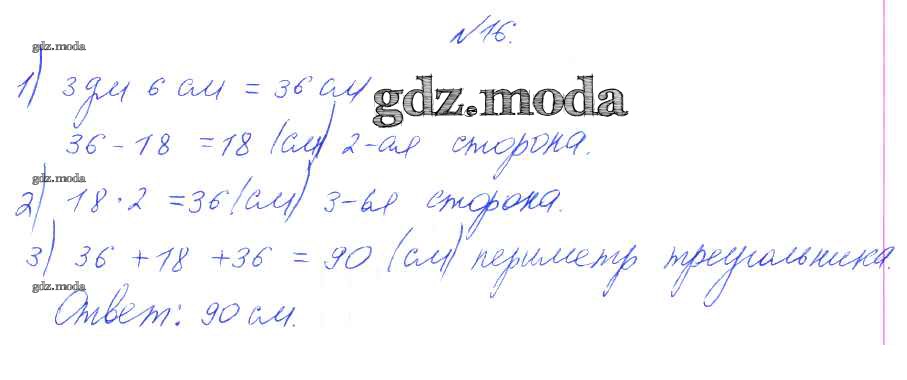 №16.
gdz.moda
1) 3 дм 6 см = 36 см
gdz.moda
36 - 18 = 18 (см) 2-ая сторона.
gdz.moda
2) 18 · 2 = 36 (см) 3-ья сторона.
3) 36 + 18 + 36 = 90 (см) периметр треугольника.
gdz.moda
Ответ: 90 см.